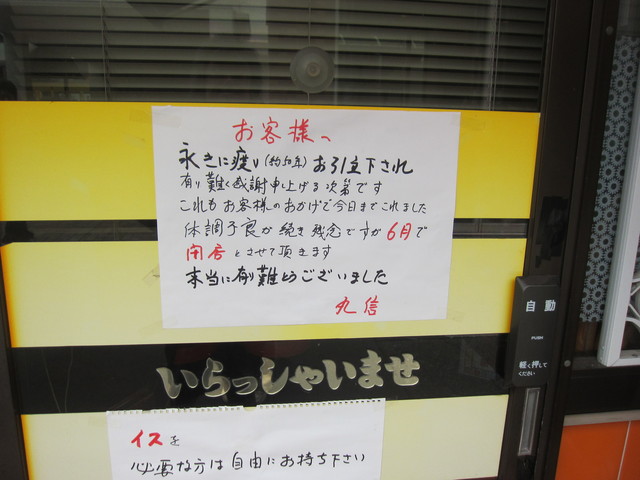 お客様へ
永きに渡り(約50年)お引立下され
有り難く感謝申し上げる次第です
これもお客様のおかげで今日までこれました
体調不良が続き残念ですが6月で
閉店とさせて頂きます
本当に有り難とうございました
丸信
自動
PUSH
軽く押して
ください
いらっしゃいませ
イスを
必要な方は自由にお持ち下さい